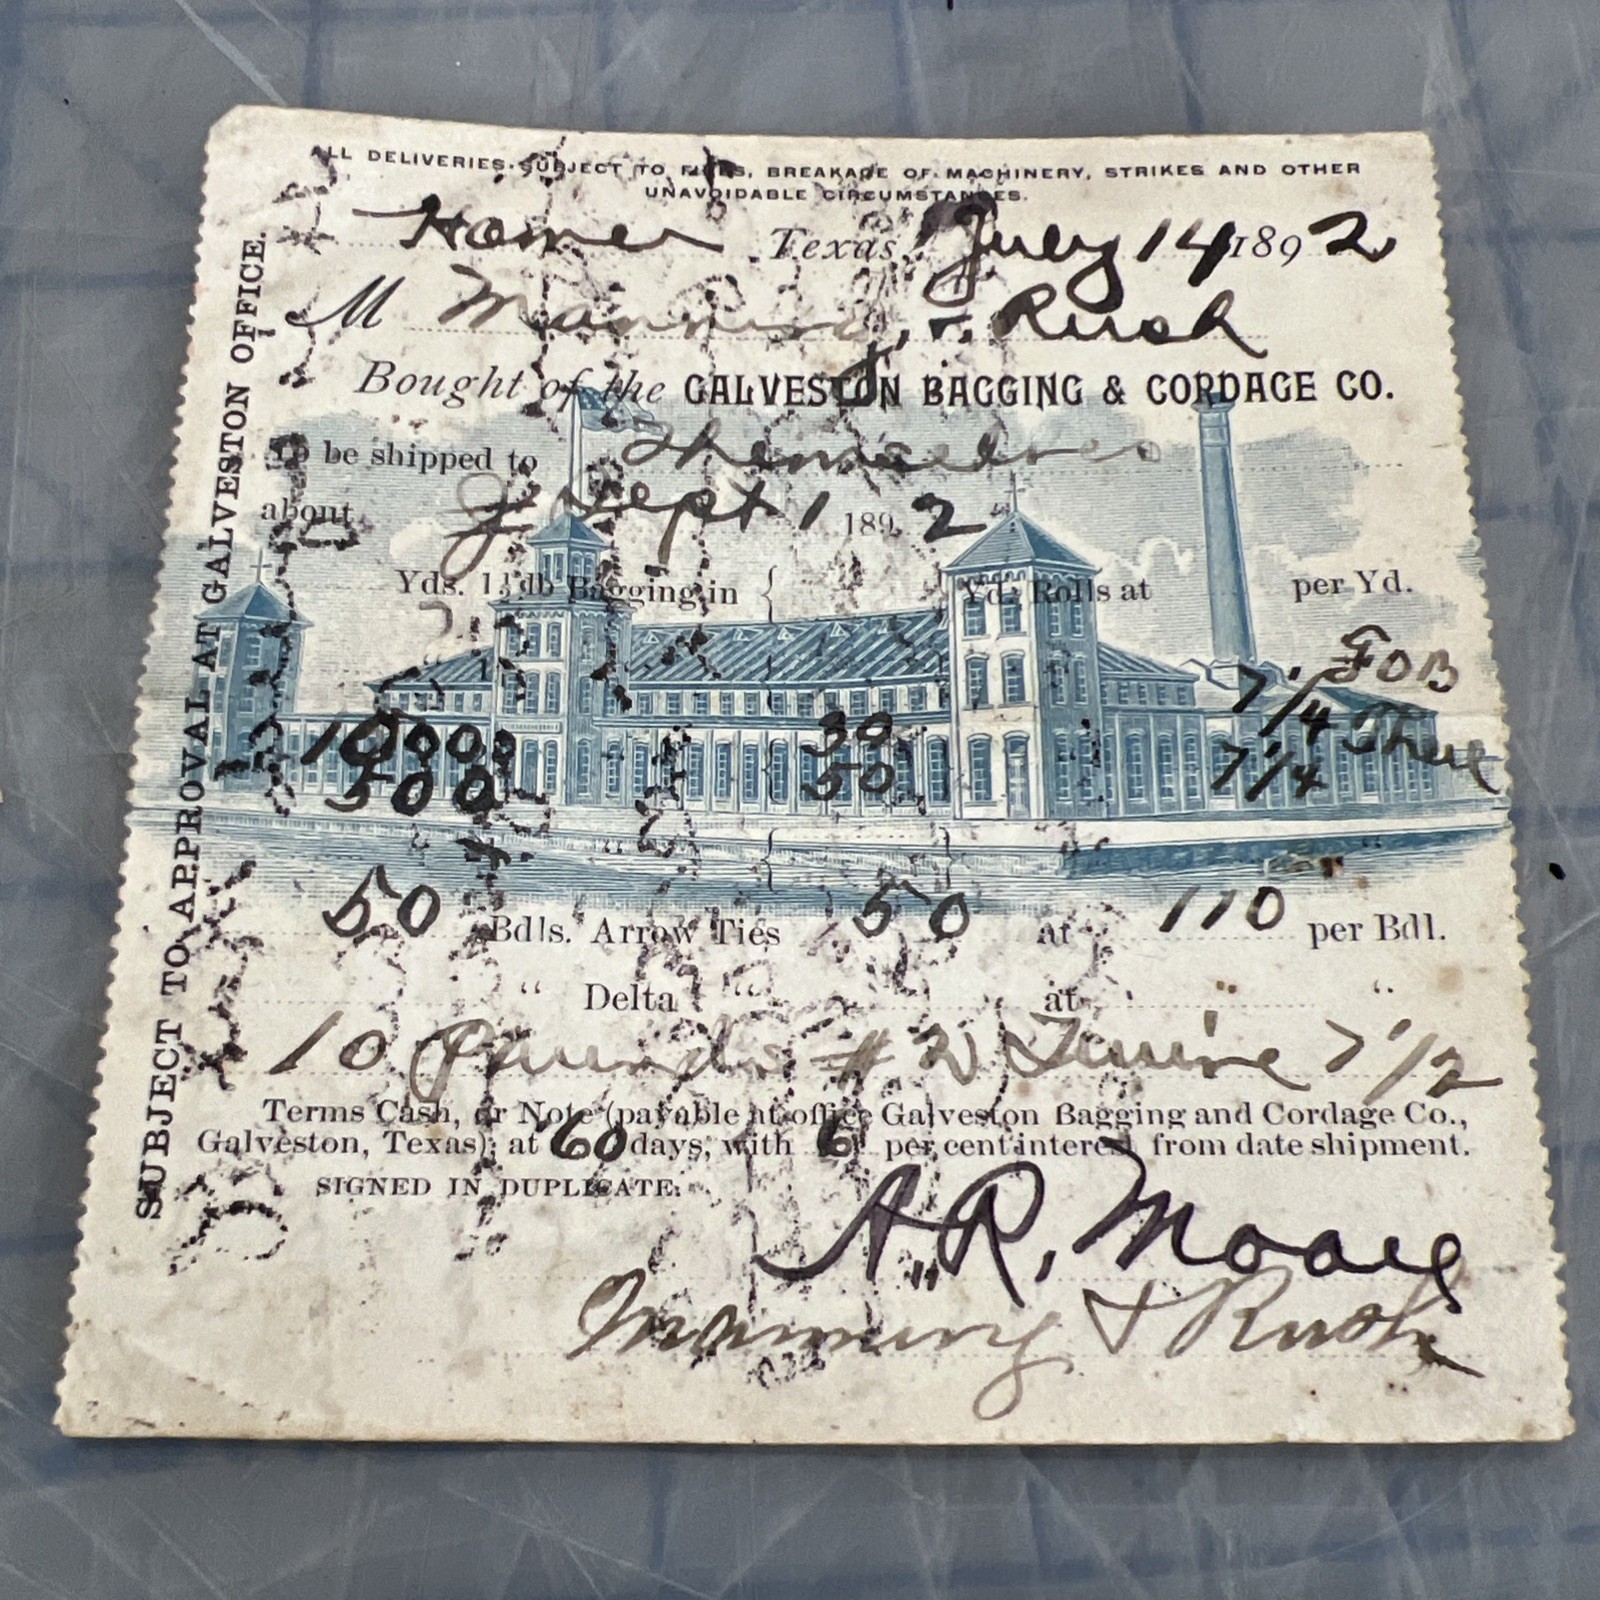 ALL DELIVERIES SUBJECT TO FIRES, BREAKAGE OF MACHINERY, STRIKES AND OTHER
UNAVOIDABLE CIRCUMSTANCES.
Homer Texas, July 14 1892
M Manning & Rush
Bought of the GALVESTON BAGGING & CORDAGE CO.
To be shipped to Themselves
about Sept 1 1892
Yds. lb Bagging in { Yd. Rolls at per Yd.
FOB
1000 " { 30 7 1/4 There
500 50 7 1/4
" { "
50 Bdls. Arrow Ties 50 at 110 per Bdl.
" Delta " at "
10 Pounds # 2 Twine 7 1/2
Terms Cash, or Note (payable at office Galveston Bagging and Cordage Co.,
Galveston, Texas) at 60 days, with 6 per cent interest from date shipment.
SIGNED IN DUPLICATE.
A.R. Moore
Manning & Rush
SUBJECT TO APPROVAL AT GALVESTON OFFICE.